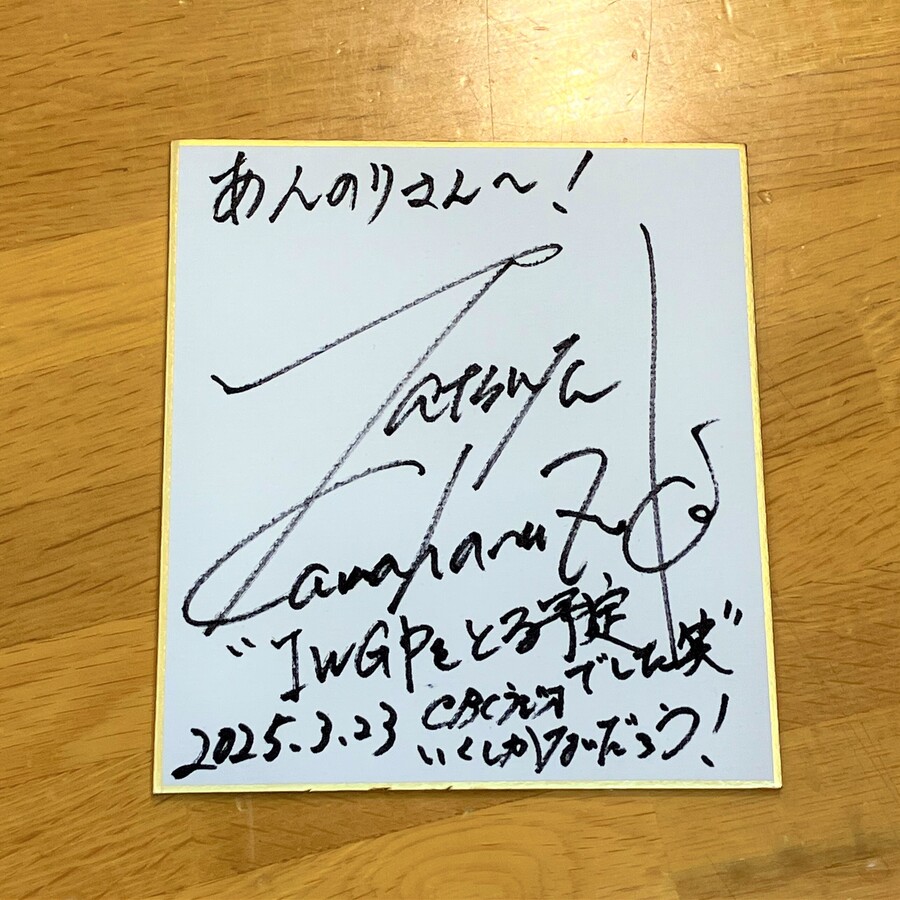 あんのりさん〜!
Tatsuya
"IWGPをとる予定
でした笑"
2025.3.23
CBCラジオ
いくしかないだろう!